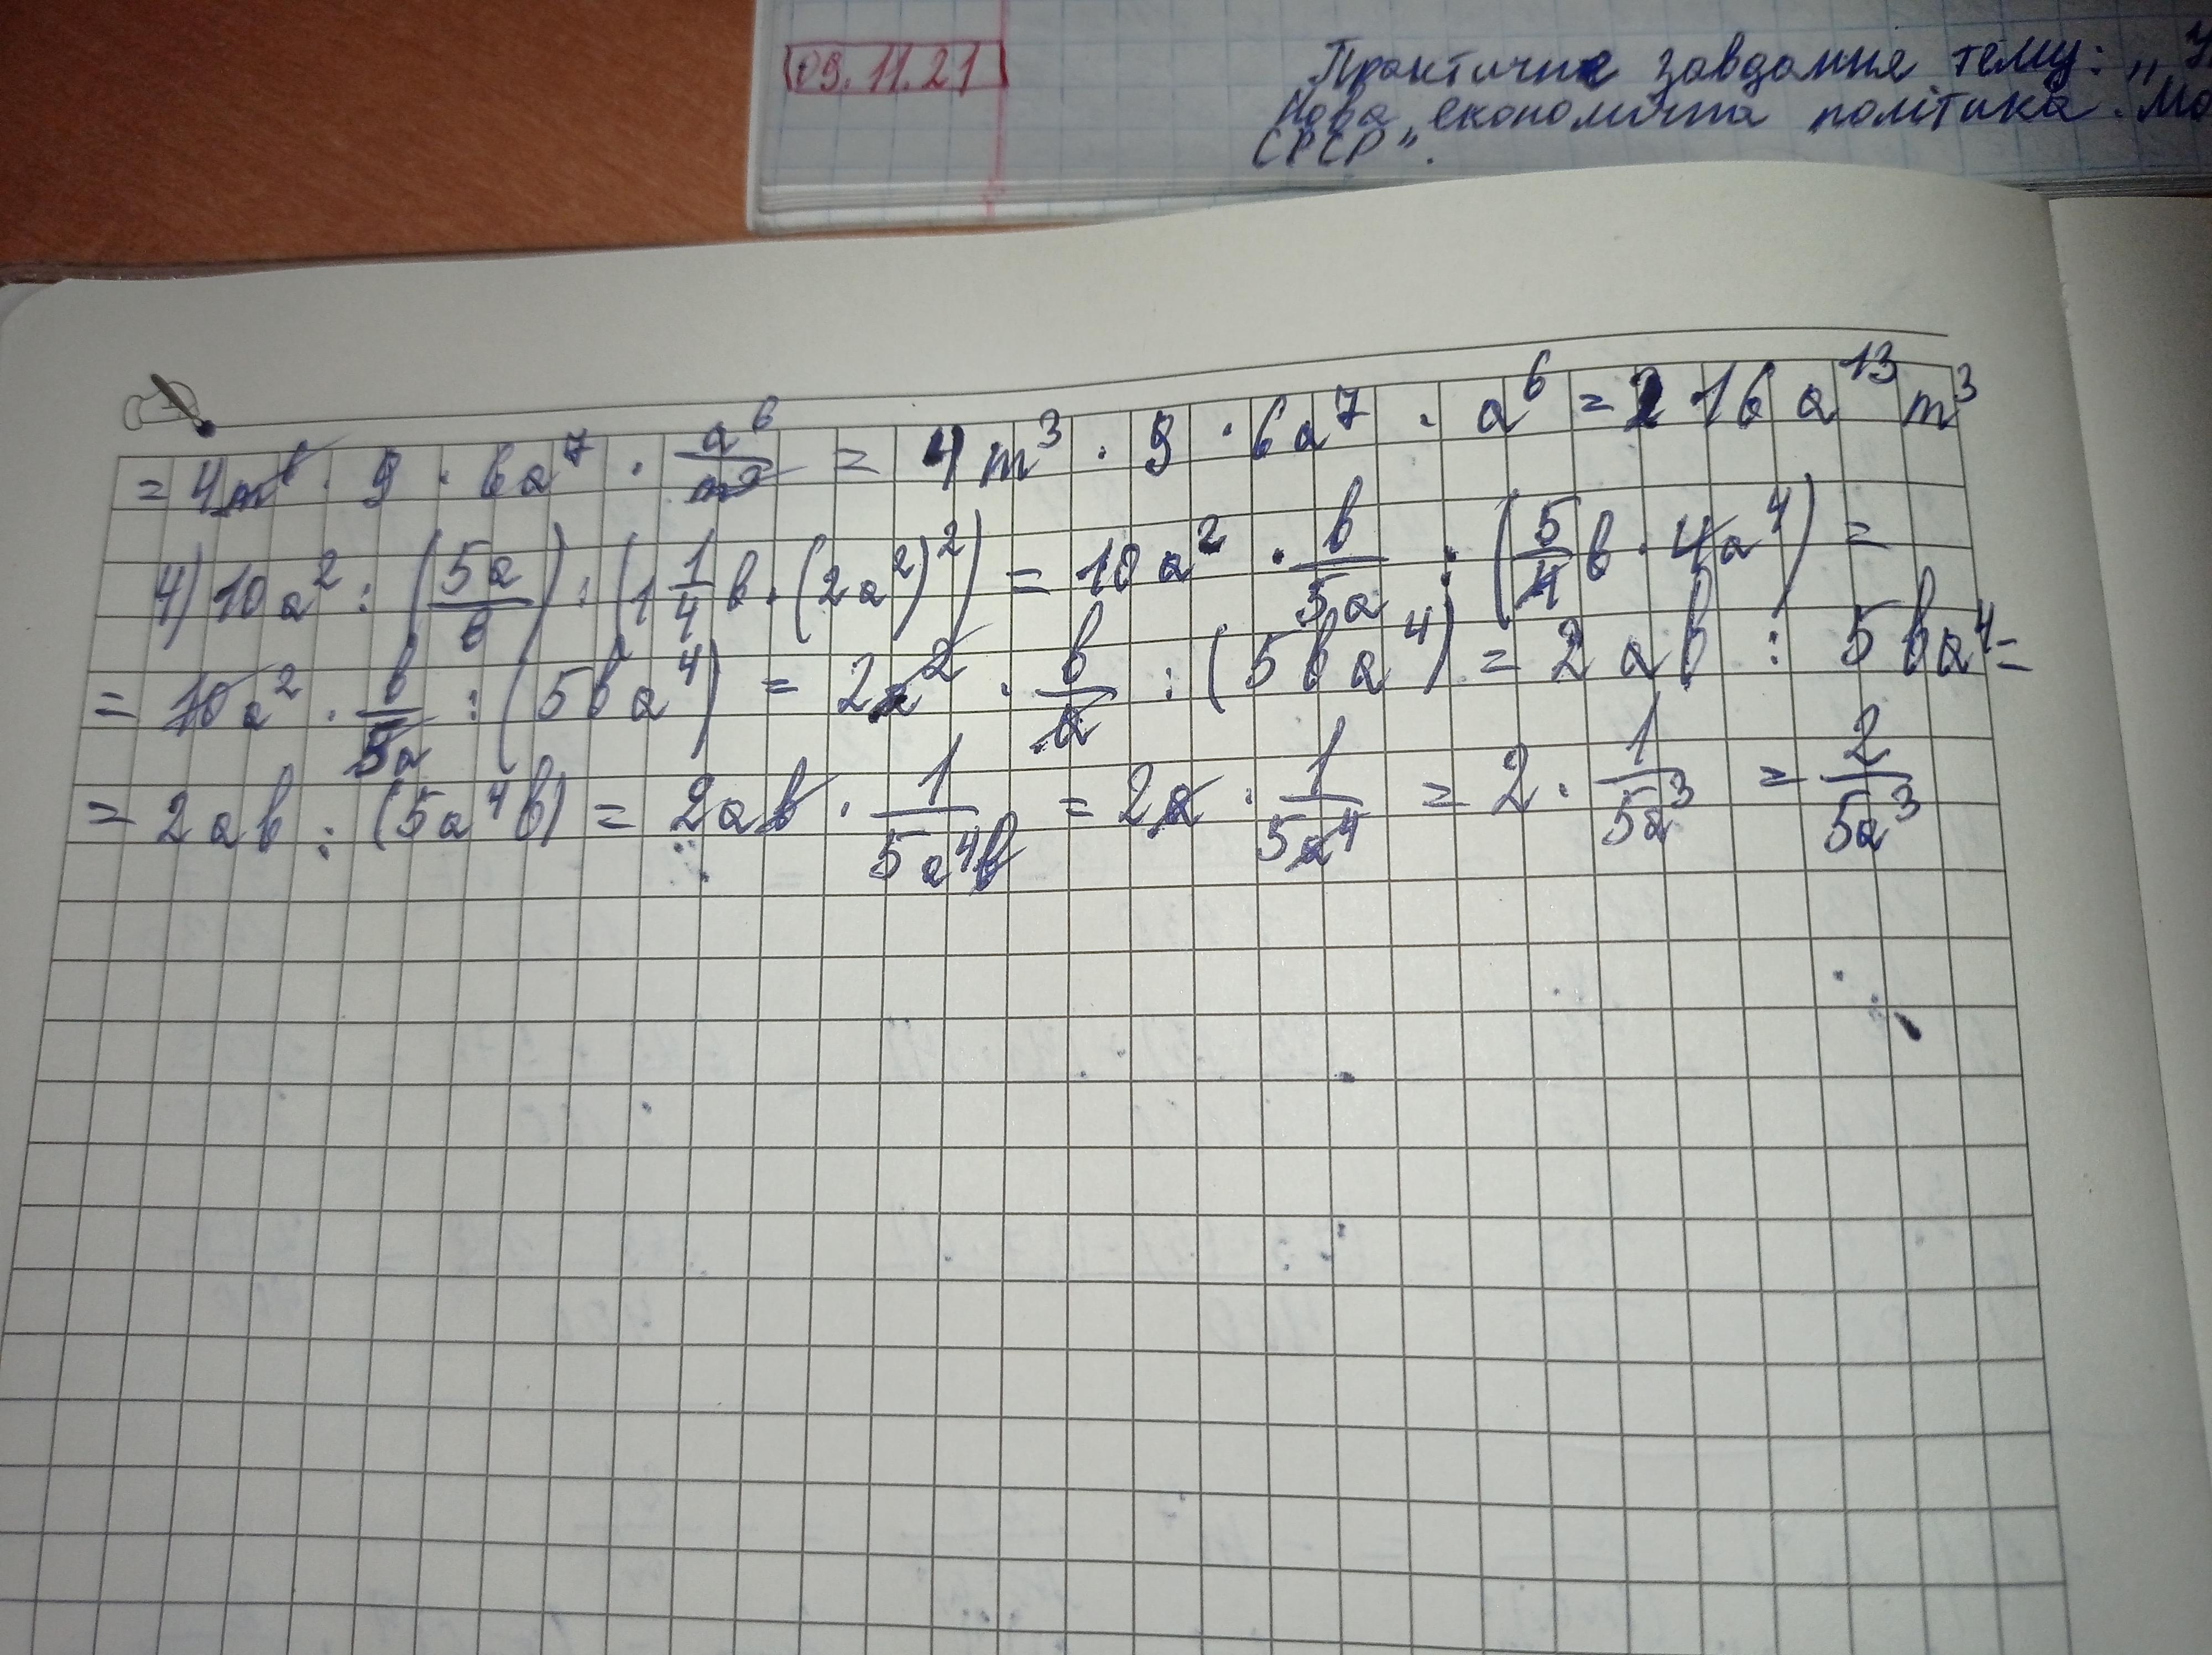 09.11.21
Практичне завдання тему: „У
Нова економічна політика. Мо
СРСР”.
= 4m⁶ · 9 · 6a⁷ · a⁶/m³ = 4m³ · 9 · 6a⁷ · a⁶ = 216a¹³m³
4) 10a² : (5a/b) : (1 1/4 b · (2a²)²) = 10a² · b/5a : (5/4 b · 4a⁴) =
= 10a² · b/5a : (5ba⁴) = 2a² · b/a : (5ba⁴) = 2ab : 5ba⁴ =
= 2ab : (5a⁴b) = 2ab · 1/5a⁴b = 2a · 1/5a⁴ = 2 · 1/5a³ = 2/5a³